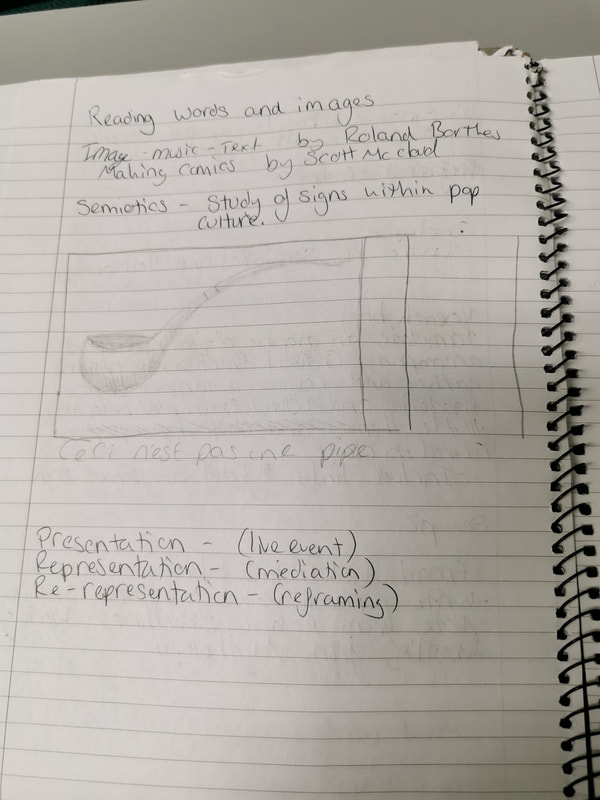 Reading words and images
Image - music - Text by Roland Barthes
Making Comics by Scott McCloud
Semiotics - Study of signs within pop
culture.
Ceci n'est pas une pipe
Presentation - (live event)
Representation - (mediation)
Re-representation - (reframing)